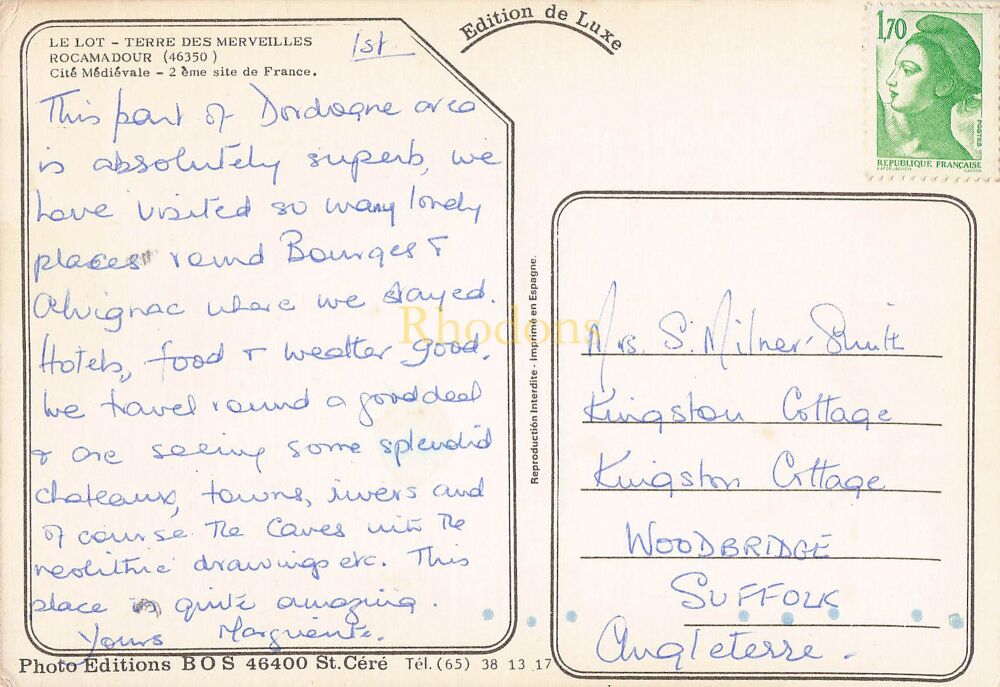 LE LOT - TERRE DES MERVEILLES
ROCAMADOUR (46350)
Cité Médiévale - 2 ème site de France.
1st
Edition de Luxe
1,70
POSTES
REPUBLIQUE FRANÇAISE
This part of Dordogne area
is absolutely superb, we
have visited so many lovely
places round Bourges &
Alvignac where we stayed.
Hotels, food & weather good.
We travel round a good deal
& are seeing some splendid
chateaux, towns, rivers and
of course the Caves with the
neolithic drawings etc. This
place is quite amazing.
Yours Marguerite.
Photo Editions BOS 46400 St.Céré Tél.(65) 38 13 17
Reproduction Interdite - Imprimé en Espagne.
Rhodons
Mrs. S. Milner-Smith
Kingston Cottage
Kingston Cottage
WOODBRIDGE
SUFFOLK
Angleterre.